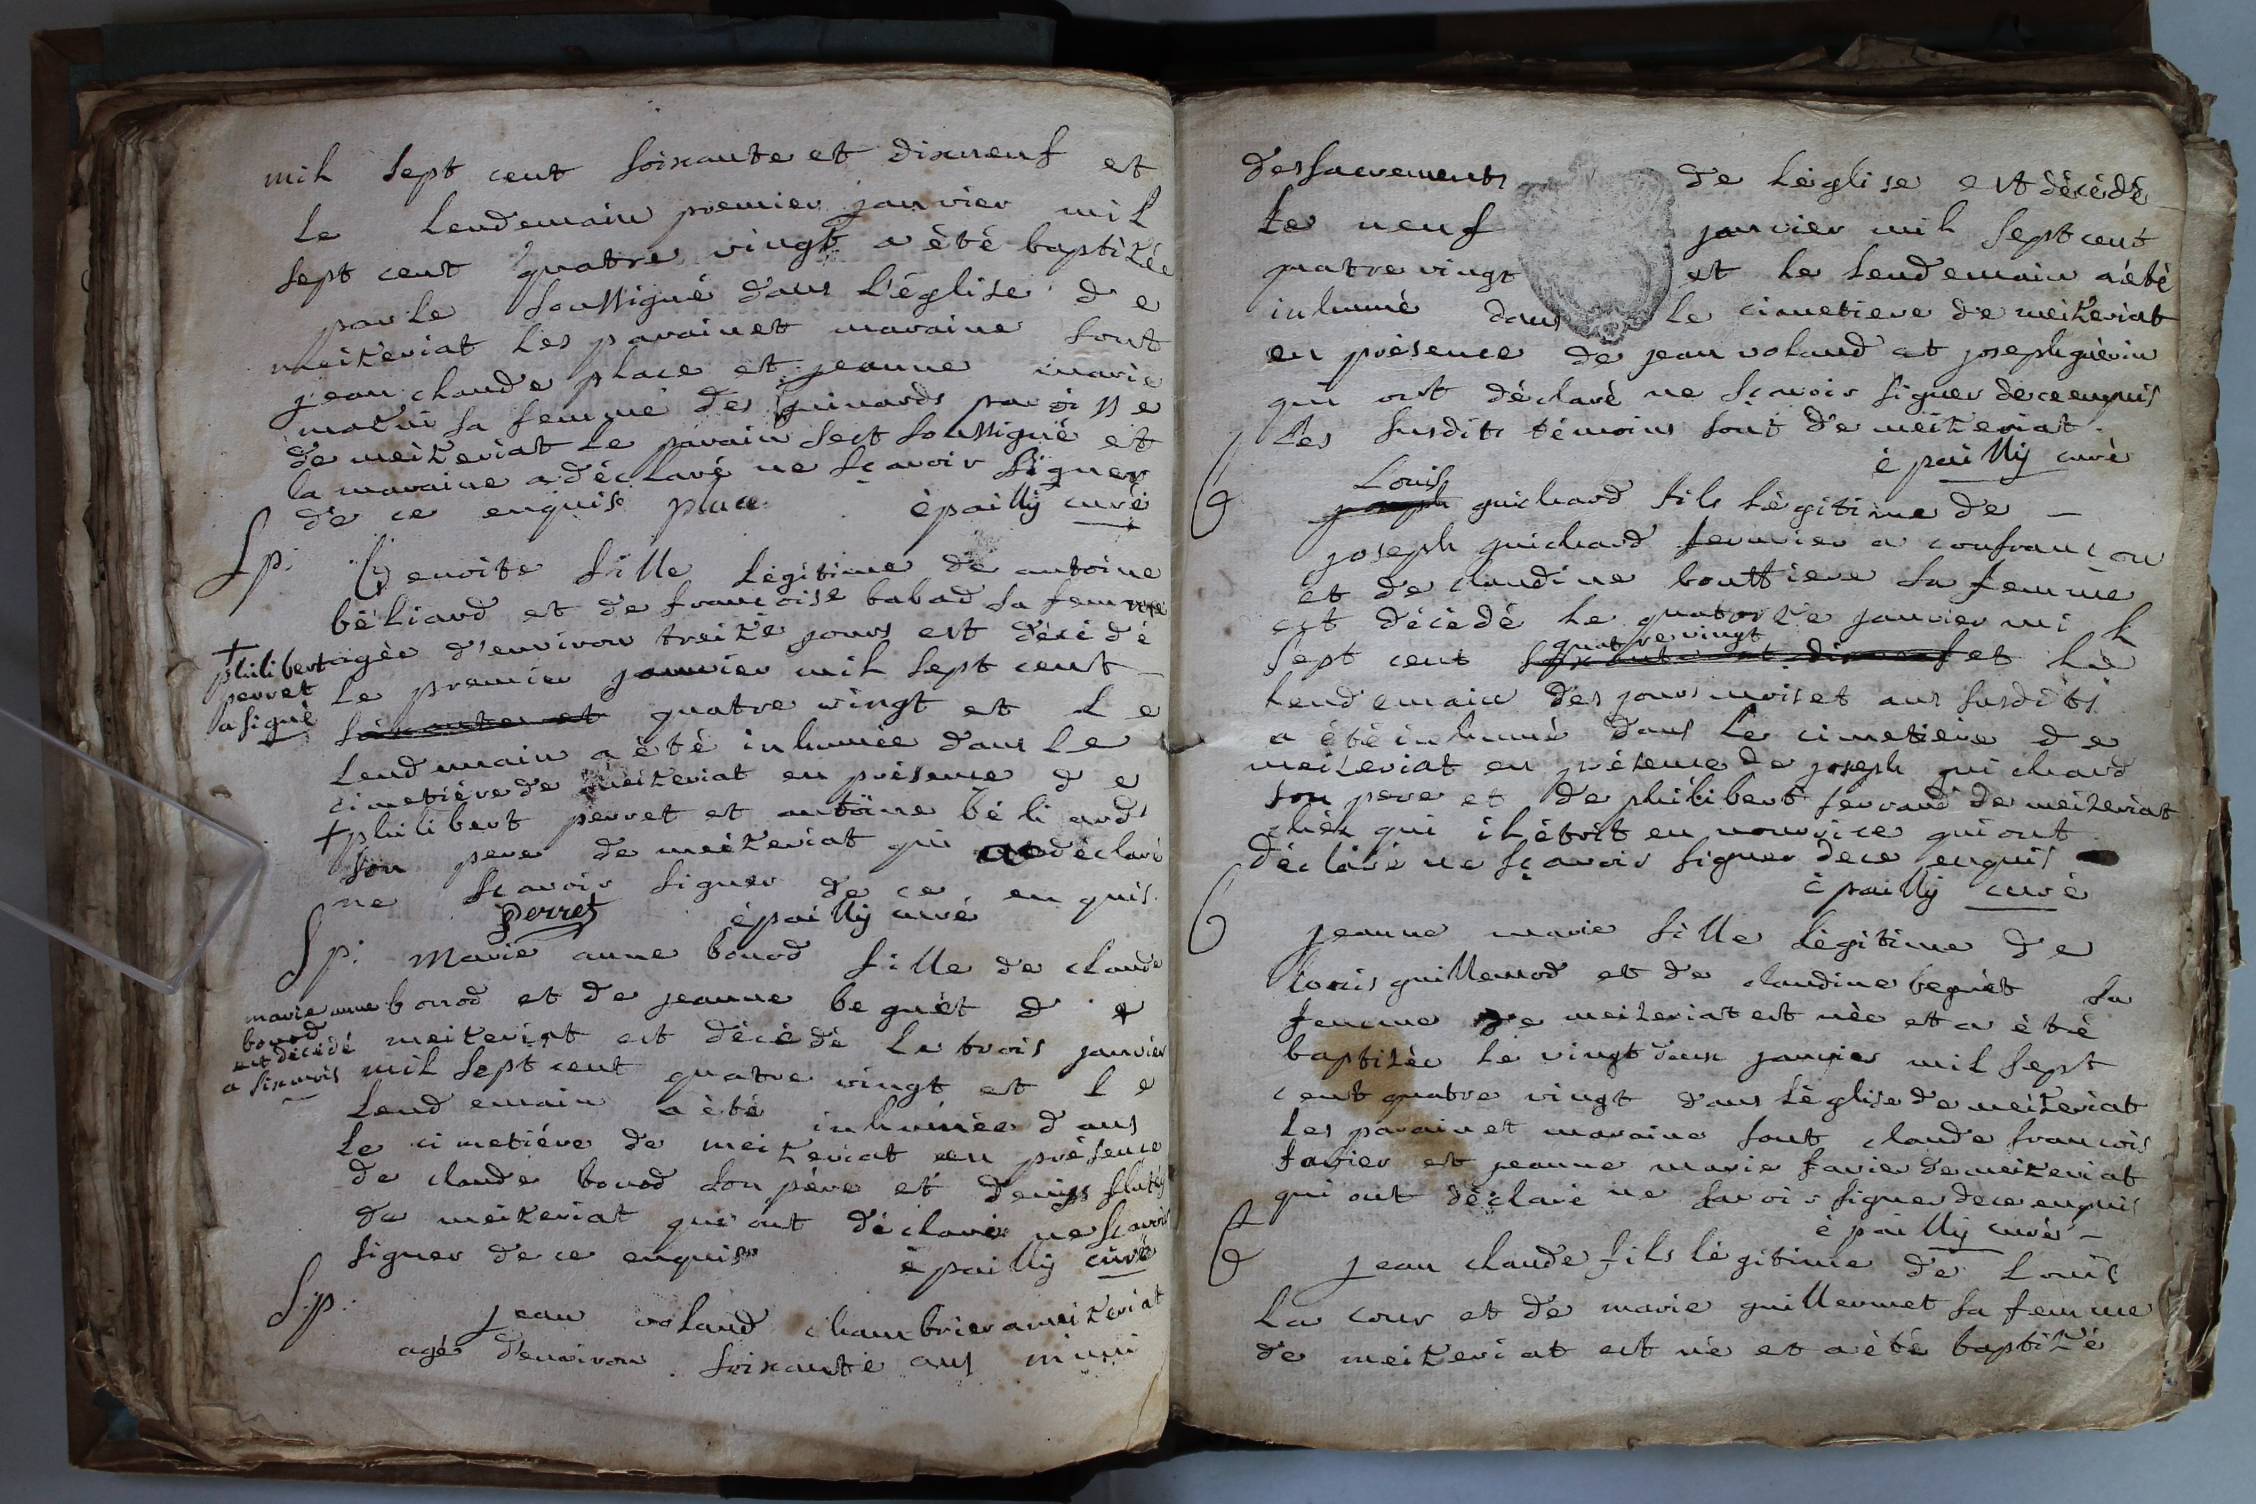 mil sept cent soixante et dixneuf et
le lendemain premier janvier mil
sept cent quatre vingt a été baptizée
par le soussigné dans l'église de
meizeriat les parain et maraine sont
jean claude place et jeanne marie
sa femme des guinards paroisse
de meizeriat le parain sest soussigné et
la maraine a déclaré ne sçavoir signer
de ce enquise place épailly curé
Sp. Benoite fille légitime de antoine
béliard et de francoise babad sa femme
agée d'environ treize jours est décédé
+
philibert
perret
a signé
le premier janvier mil sept cent
soixante et quatre vingt et le
lendemain a été inhumée dans le
cimetiére de meizeriat en présence de
+ philibert perret et antoine béliard
son pere de meizeriat qui déclaré
ne sçavoir signer de ce enquis
perret épailly curé
Sp. Marie anne bonod fille de claude
bonod et de jeanne beguet de
marie anne
bonod
est décédé
a six mois
meizeriat est décédé le trois janvier
mil sept cent quatre vingt et le
lendemain a été inhumée dans
le cimetiére de meizeriat en présence
de claude bonod son père et denis
de meizeriat qui ont déclaré ne sçavoir
signer de ce enquis épailly curé
Sp. jean voland chambrier a meizeriat
agé d'environ soixante ans muni
des sacrements de léglise est décédé
le neuf janvier mil sept cent
quatre vingt et le lendemain a été
inhumé dans le cimetiere de meizeriat
en présence de jean voland et joseph guérin
qui ont déclaré ne sçavoir signer de ce enquis
les susdits témoins sont de meizeriat.
épailly curé
Louis
joseph guichard fils légitime de
joseph guichard fermier a confrancon
et de claudine bouttiere sa femme
est décédé le quatorze janvier mil
quatre vingt
sept cent soixante et dixneuf et le
lendemain des jours mois et ans susdits
a été inhumé dans le cimetiere de
meizeriat en présence de joseph guichard
son pere et de philibert ferrand de meizeriat
chez qui il étoit en nourrice qui ont
déclaré ne sçavoir signer de ce enquis
épailly curé
jeanne marie fille légitime de
louis guillemod et de claudine beguet sa
femme de meizeriat est née et a été
baptisée le vingt deux janvier mil sept
cent quatre vingt dans léglise de meizeriat
les parain et maraine sont claude francois
favier et jeanne marie favie de meizeriat
qui ont déclaré ne savoir signer de ce enquis
épailly curé
jean claude fils légitime de Louis
La cour et de marie guillermet sa femme
de meizeriat est né et a été baptizé